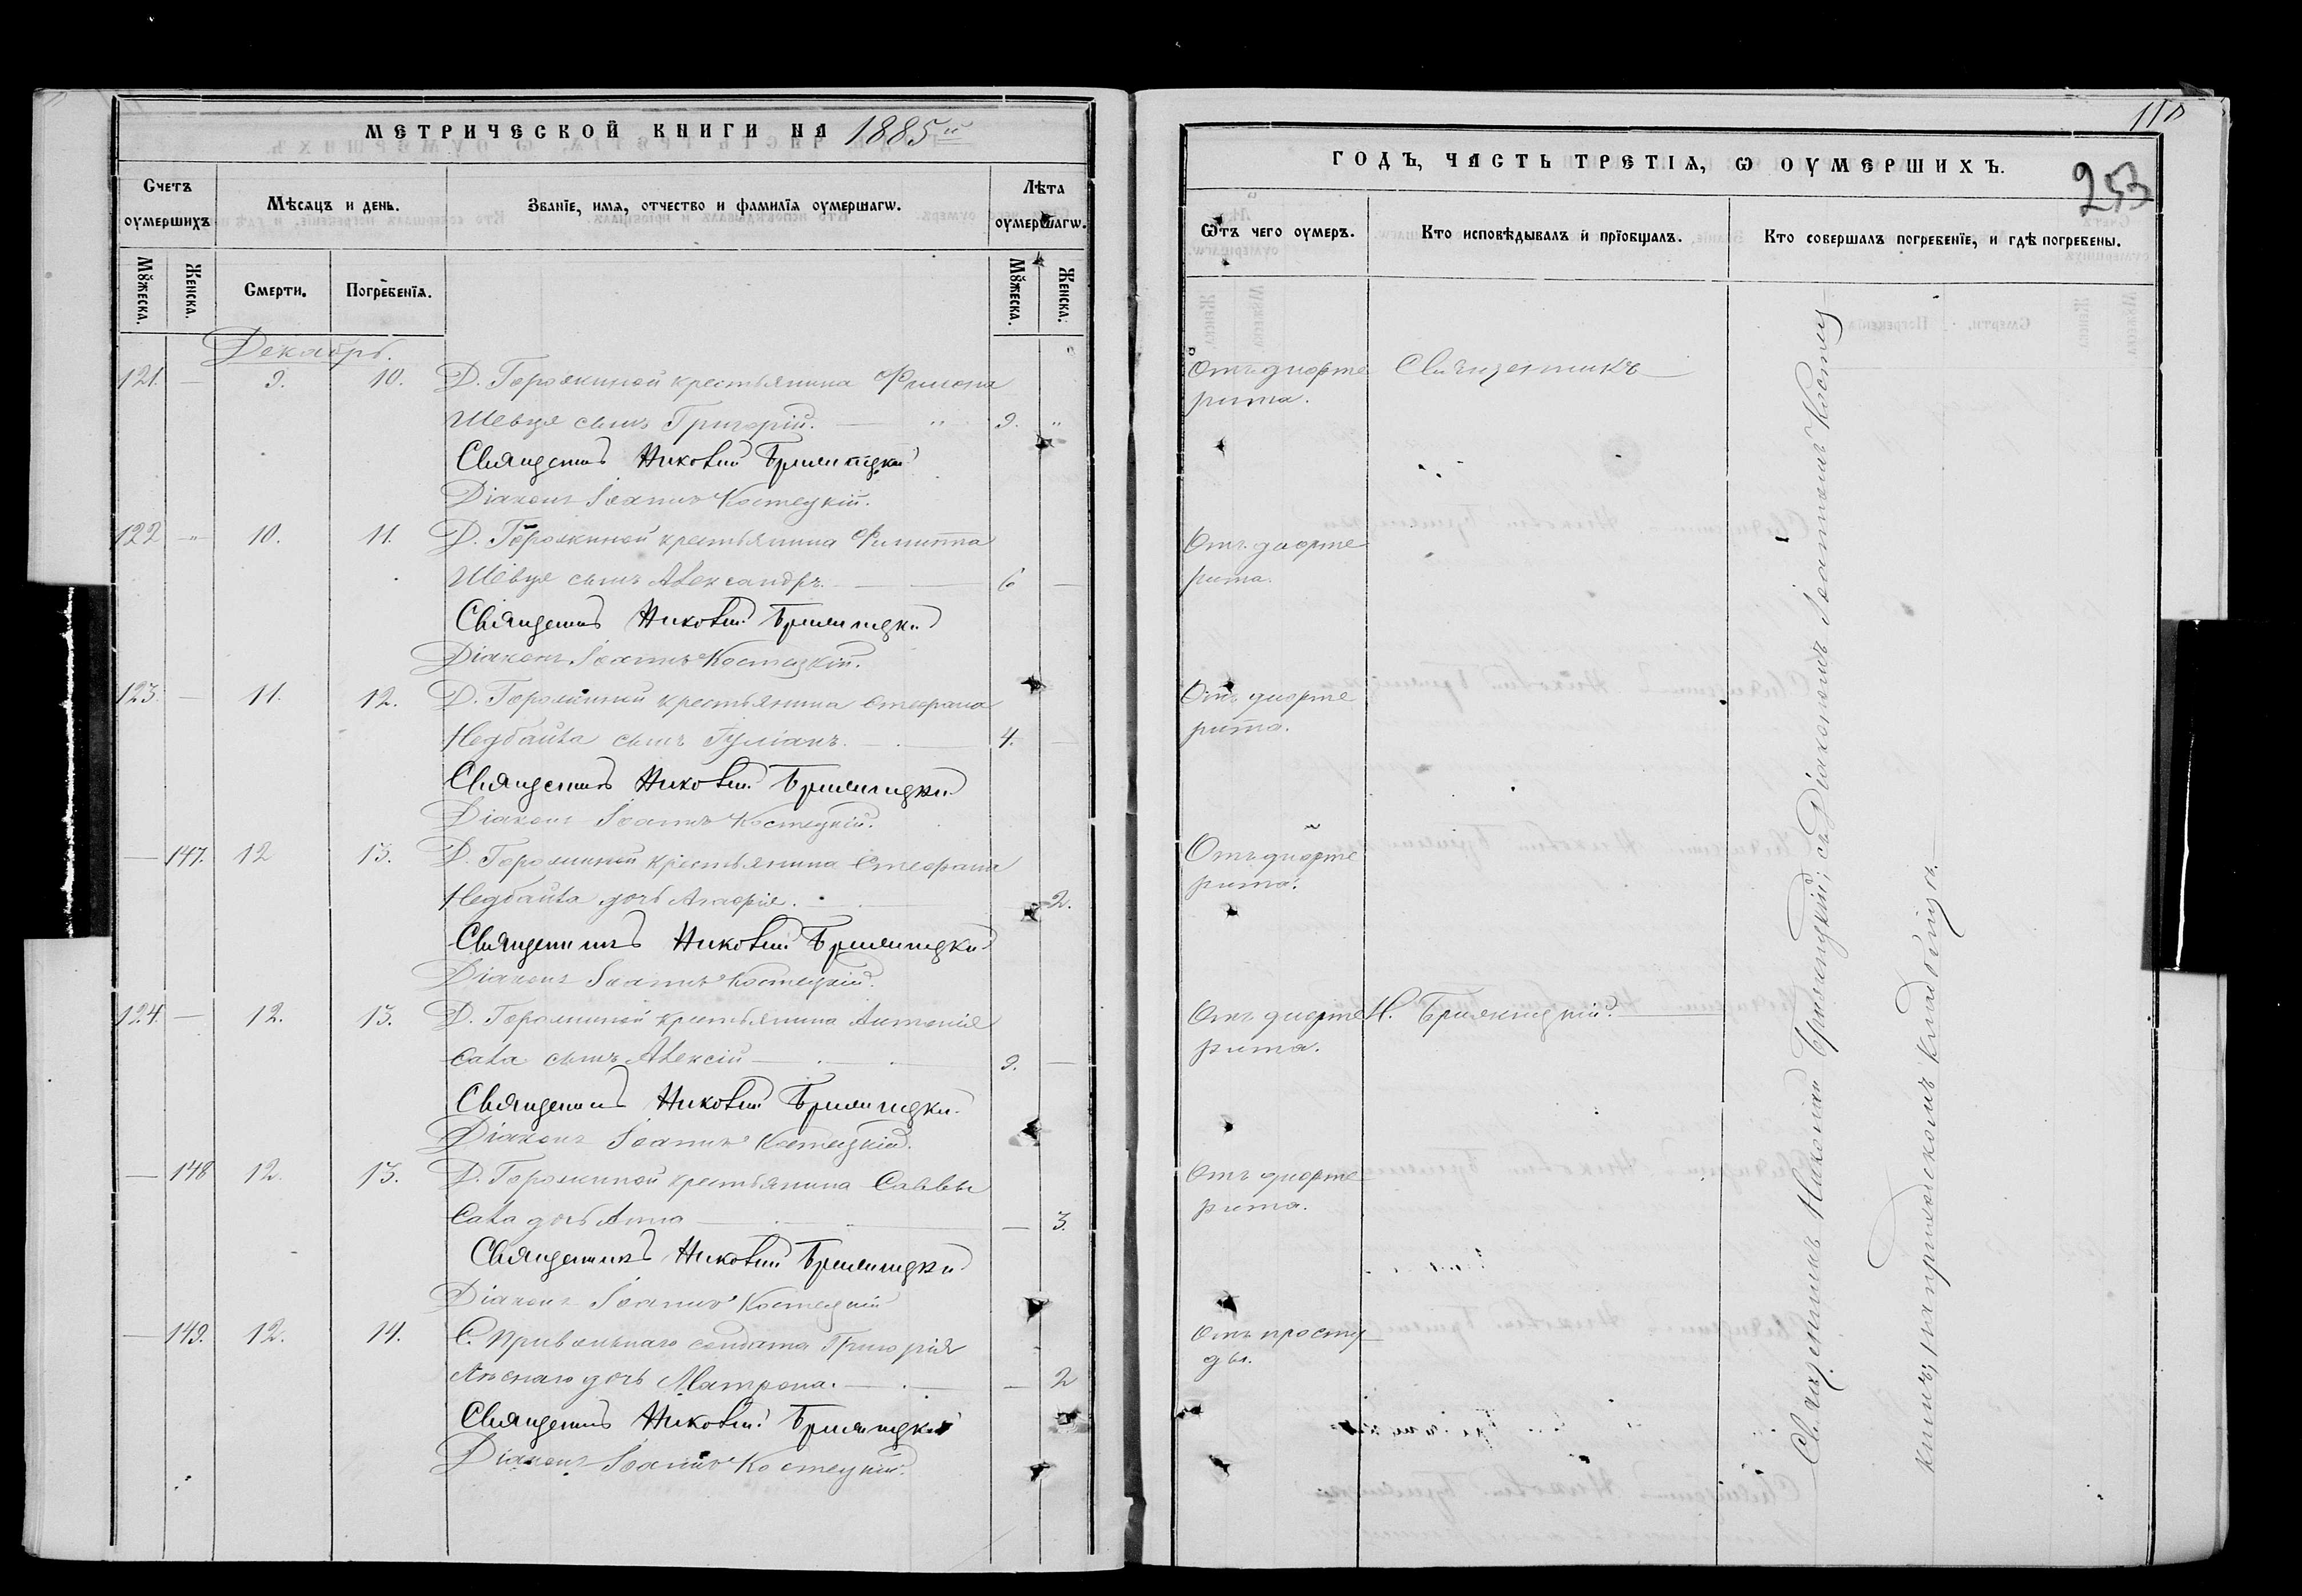 МЕТРИЧЕСКОЙ КНИГИ НА 1885й
Счетъ оумершихъ
Мѣсяцъ и день.
Званїе, имя, отчество и фамилїя оумершагѡ.
Лѣта оумершагѡ.
Мꙋжеска.
Женска.
Смерти.
Погребенїя.
Мꙋжеска.
Женска.
Декабрь.
121. — 9. 10. Д. Горожиной крестьянина Филона
Шевця сынъ Григорій. — „ 9. „
Священникъ Николай
Діаконъ Іоаннъ Костецкій.
122 „ 10. 11. Д. Горожиной крестьянина Филиппа
Шевця сынъ Александръ. — 6 —
Священникъ Николай
Діаконъ Іоаннъ Костецкій.
123. — 11. 12. Д. Горожиной крестьянина Стефана
Недбайла сынъ Іуліанъ. — 4. —
Священникъ Николай
Діаконъ Іоаннъ Костецкій.
— 147. 12 13. Д. Горожиной крестьянина Стефана
Недбайла дочь Агафія. — 2.
Священникъ Николай
Діаконъ Іоаннъ Костецкій.
124. — 12. 13. Д. Горожиной крестьянина Антонія
Сала сынъ Алексій — 9. —
Священникъ Николай
Діаконъ Іоаннъ Костецкій.
— 148 12. 13. Д. Горожиной крестьянина Саввы
Сала дочь Анна — — 3.
Священникъ Николай
Діаконъ Іоаннъ Костецкій
— 149. 12. 14. С. Привольнаго солдата Григорія
дочь Матрона. — — 2
Священникъ Николай
Діаконъ Іоаннъ Костецкій.
253
ГОДЪ, ЧАСТЬ ТРЕТІЯ, Ѡ ОУМЕРШИХЪ.
Ѿтъ чего оумеръ.
Кто исповѣдывалъ и прїобщалъ.
Кто совершалъ погребенїе, и гдѣ погребены.
Отъ дифте Священникъ —
рита.
Отъ дифте
рита.
Отъ дифте
рита.
Отъ дифте
рита.
Отъ дифте Н.
рита.
Отъ дифте
рита.
Отъ просту
ды.
Священникъ Николай съ Діакономъ Іоанномъ Костец
кимъ, на приходскомъ кладбищѣ.